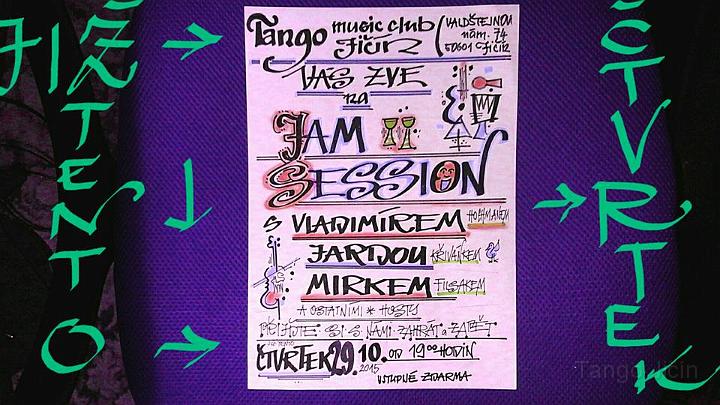 JIŽ
TENTO
ČTVRTEK
Tango music club
Jičín
(VALDŠTEJNOVO
nám. 74
50601 Jičín
VÁS ZVE
na
JAM
SESSION
S VLADIMÍREM HOFMANEM
JARDOU KŘIVÁČKEM
MIRKEM FILSAKEM
A OSTATNÍMI * HOSTY
PŘIJĎTE SI S NÁMI ZAHRÁT a ZAPĚT
ČTVRTEK 29. 10. OD 19 00 HODIN
2015
VSTUPNÉ ZDARMA
TangoJicin